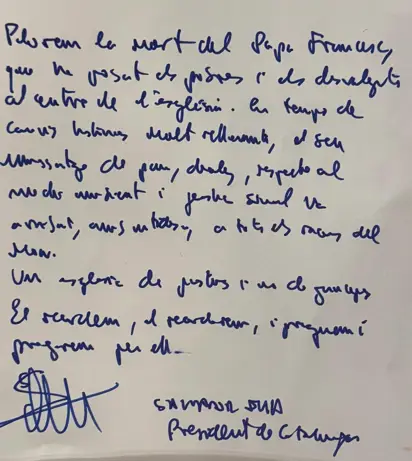 Plorem la mort del Papa Francesc,
que ha posat els pobres i els desvalguts
al centre de l'església. En temps de
canvis històrics molt rellevants, el seu
missatge de pau, drets, respecte al
medi ambient i justícia social ha
arribat, a tots els racons del
món.
Una església de pastors i no de
El recordem, el recordarem, i preguem i
pregarem per ell.
SALVADOR ILLA
President de Catalunya